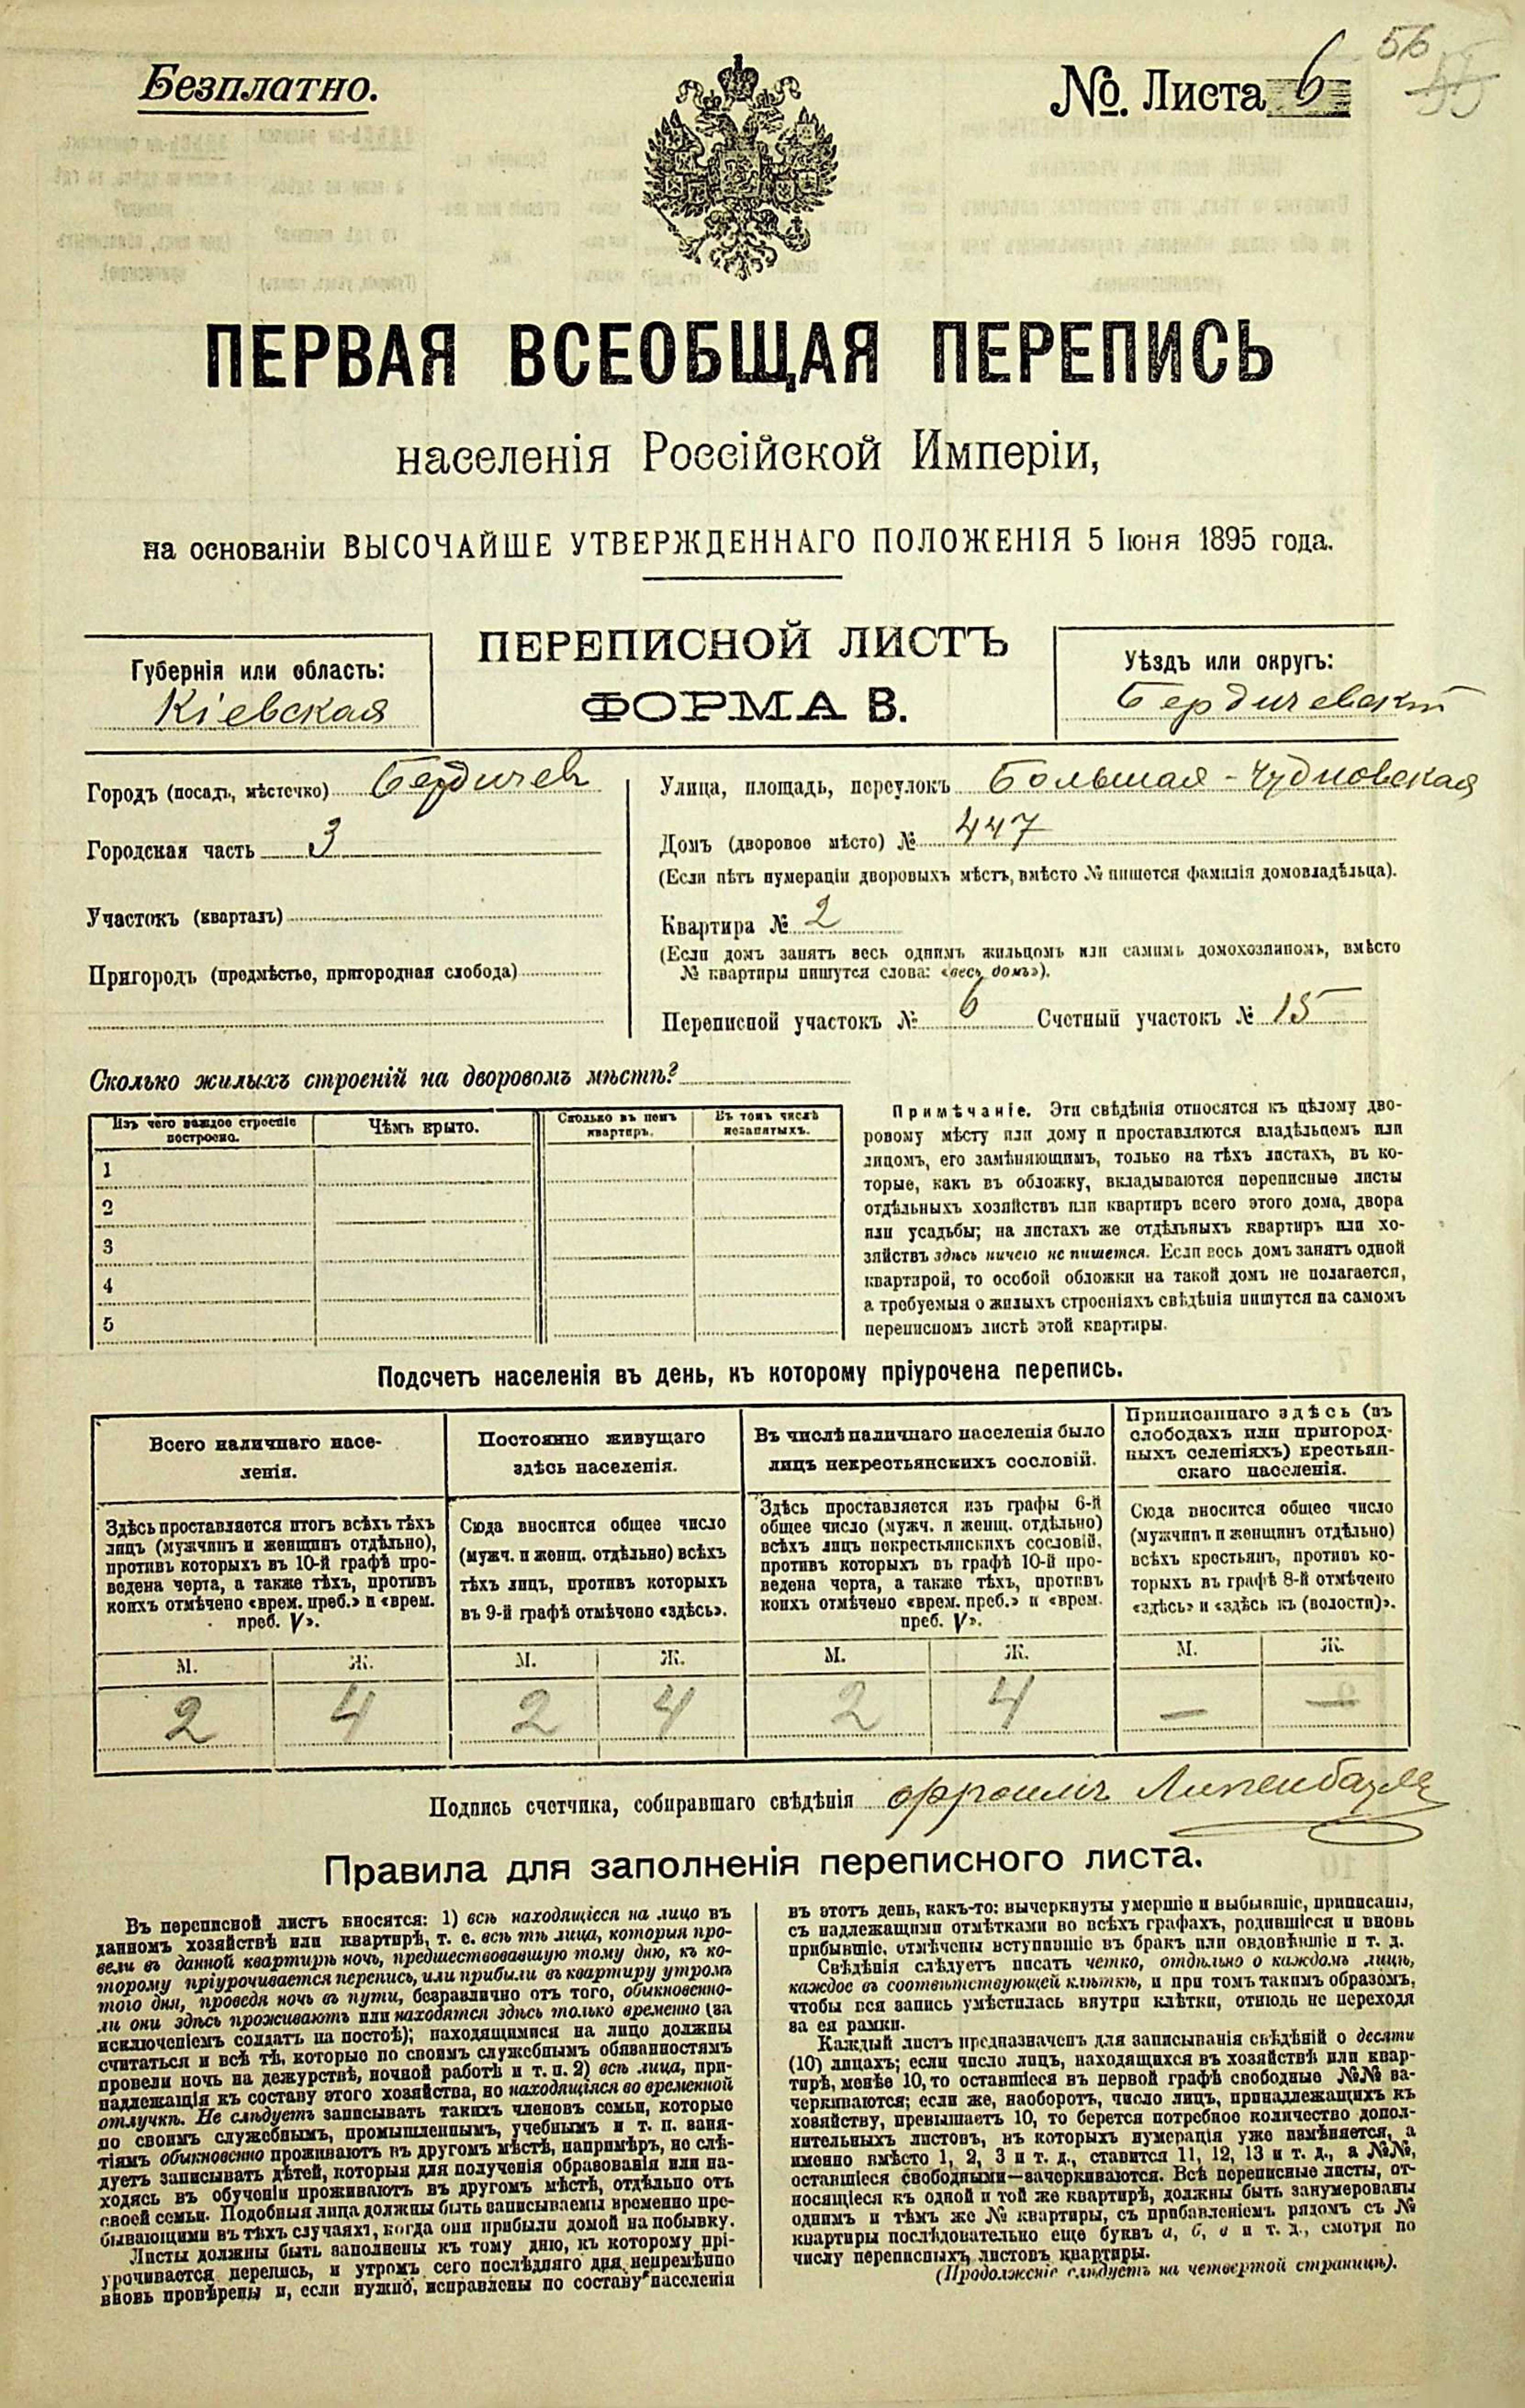 Безплатно.
№. Листа 6
56
ПЕРВАЯ ВСЕОБЩАЯ ПЕРЕПИСЬ
населенія Россійской Имперіи,
на основаніи ВЫСОЧАЙШЕ УТВЕРЖДЕННАГО ПОЛОЖЕНІЯ 5 Іюня 1895 года.
ПЕРЕПИСНОЙ ЛИСТЪ
ФОРМА В.
Губернія или область:
Кіевская
Уѣздъ или округъ:
Бердичевскій
Городъ (посадъ, мѣстечко) Бердичев
Городская часть 3
Участокъ (кварталъ)
Пригородъ (предмѣстье, пригородная слобода)
Улица, площадь, переулокъ Большая-Чудновская
Домъ (дворовое мѣсто) № 447
(Если нѣтъ нумераціи дворовыхъ мѣстъ, вмѣсто № пишется фамилія домовладѣльца).
Квартира № 2
(Если домъ занятъ весь однимъ жильцомъ или самимъ домохозяиномъ, вмѣсто
№ квартиры пишутся слова: «весь домъ»).
Переписной участокъ № 6 Счетный участокъ № 15
Сколько жилыхъ строеній на дворовомъ мѣстѣ?
Изъ чего каждое строеніе
построено.
Чѣмъ крыто.
Сколько въ немъ
квартиръ.
Въ томъ числѣ
незанятыхъ.
1
2
3
4
5
Примѣчаніе. Эти свѣдѣнія относятся къ цѣлому дво-
ровому мѣсту или дому и проставляются владѣльцемъ или
лицомъ, его замѣняющимъ, только на тѣхъ листахъ, въ ко-
торые, какъ въ обложку, вкладываются переписные листы
отдѣльныхъ хозяйствъ или квартиръ всего этого дома, двора
или усадьбы; на листахъ же отдѣльныхъ квартиръ или хо-
зяйствъ здѣсь ничего не пишется. Если весь домъ занятъ одной
квартирой, то особой обложки на такой домъ не полагается,
а требуемыя о жилыхъ строеніяхъ свѣдѣнія пишутся на самомъ
переписномъ листѣ этой квартиры.
Подсчетъ населенія въ день, къ которому пріурочена перепись.
Всего наличнаго насе-
ленія.
Постоянно живущаго
здѣсь населенія.
Въ числѣ наличнаго населенія было
лицъ некрестьянскихъ сословій.
Приписаннаго здѣсь (въ
слободахъ или пригород-
ныхъ селеніяхъ) крестьян-
скаго населенія.
Здѣсь проставляется итогъ всѣхъ тѣхъ
лицъ (мужчинъ и женщинъ отдѣльно),
противъ которыхъ въ 10-й графѣ про-
ведена черта, а также тѣхъ, противъ
коихъ отмѣчено «врем. преб.» и «врем.
преб. V».
Сюда вносится общее число
(мужч. и женщ. отдѣльно) всѣхъ
тѣхъ лицъ, противъ которыхъ
въ 9-й графѣ отмѣчено «здѣсь».
Здѣсь проставляется изъ графы 6-й
общее число (мужч. и женщ. отдѣльно)
всѣхъ лицъ некрестьянскихъ сословій,
противъ которыхъ въ графѣ 10-й про-
ведена черта, а также тѣхъ, противъ
коихъ отмѣчено «врем. преб.» и «врем.
преб. V».
Сюда вносится общее число
(мужчинъ и женщинъ отдѣльно)
всѣхъ крестьянъ, противъ ко-
торыхъ въ графѣ 8-й отмѣчено
«здѣсь» и «здѣсь къ (волости)».
М. Ж. М. Ж. М. Ж. М. Ж.
2 4 2 4 2 4 — —
Подпись счетчика, собиравшаго свѣдѣнія
Правила для заполненія переписного листа.
Въ переписной листъ вносятся: 1) всѣ находящіеся на лицо въ
данномъ хозяйствѣ или квартирѣ, т. е. всѣ тѣ лица, которыя про-
вели въ данной квартирѣ ночь, предшествовавшую тому дню, къ ко-
торому пріурочивается перепись, или прибыли въ квартиру утромъ
того дня, проведя ночь въ пути, безразлично отъ того, обыкновенно-
ли они здѣсь проживаютъ или находятся здѣсь только временно (за
исключеніемъ солдатъ на постоѣ); находящимися на лицо должны
считаться и всѣ тѣ, которые по своимъ служебнымъ обязанностямъ
провели ночь на дежурствѣ, ночной работѣ и т. п. 2) всѣ лица, при-
надлежащія къ составу этого хозяйства, но находящіяся во временной
отлучкѣ. Не слѣдуетъ записывать такихъ членовъ семьи, которые
по своимъ служебнымъ, промышленнымъ, учебнымъ и т. п. заня-
тіямъ обыкновенно проживаютъ въ другомъ мѣстѣ, напримѣръ, не слѣ-
дуетъ записывать дѣтей, которыя для полученія образованія или на-
ходясь въ обученіи проживаютъ въ другомъ мѣстѣ, отдѣльно отъ
своей семьи. Подобныя лица должны быть записываемы временно пре-
бывающими въ тѣхъ случаяхъ, когда они прибыли домой на побывку.
Листы должны быть заполнены къ тому дню, къ которому прі-
урочивается перепись, и утромъ сего послѣдняго дня непремѣнно
вновь провѣрены и, если нужно, исправлены по составу населенія
въ этотъ день, какъ-то: вычеркнуты умершіе и выбывшіе, приписаны,
съ надлежащими отмѣтками во всѣхъ графахъ, родившіеся и вновь
прибывшіе, отмѣчены вступившіе въ бракъ или овдовѣвшіе и т. д.
Свѣдѣнія слѣдуетъ писать четко, отдѣльно о каждомъ лицѣ,
каждое въ соотвѣтствующей клѣткѣ, и при томъ такимъ образомъ,
чтобы вся запись умѣстилась внутри клѣтки, отнюдь не переходя
за ея рамки.
Каждый листъ предназначенъ для записыванія свѣдѣній о десяти
(10) лицахъ; если число лицъ, находящихся въ хозяйствѣ или квар-
тирѣ, менѣе 10, то оставшіеся въ первой графѣ свободные №№ за-
черкиваются; если же, наоборотъ, число лицъ, принадлежащихъ къ
хозяйству, превышаетъ 10, то берется потребное количество допол-
нительныхъ листовъ, въ которыхъ нумерація уже измѣняется, а
именно вмѣсто 1, 2, 3 и т. д., ставится 11, 12, 13 и т. д., а №№,
оставшіеся свободными—зачеркиваются. Всѣ переписные листы, от-
носящіеся къ одной и той же квартирѣ, должны быть занумерованы
однимъ и тѣмъ же № квартиры, съ прибавленіемъ рядомъ съ №
квартиры послѣдовательно еще буквъ а, б, в и т. д., смотря по
числу переписныхъ листовъ квартиры.
(Продолженіе слѣдуетъ на четвертой страницѣ).